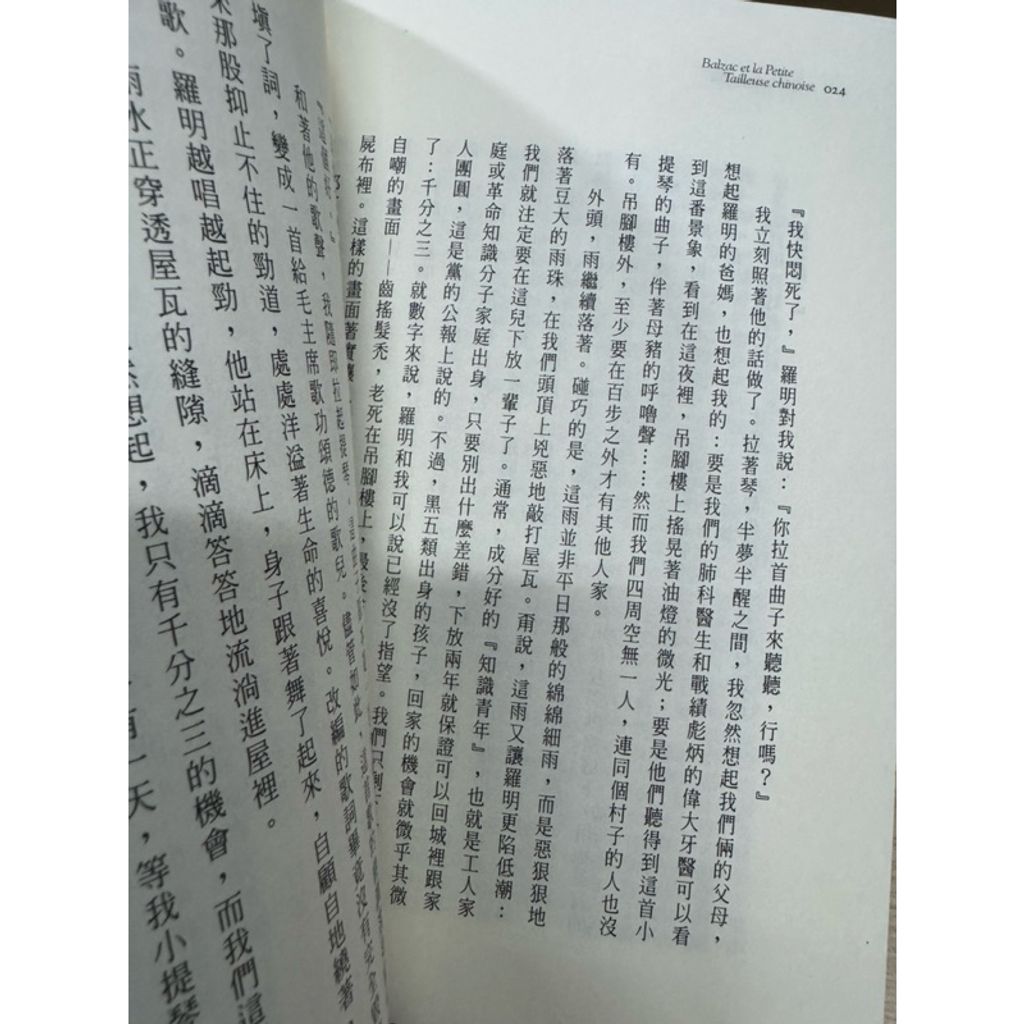 Balzac et la Petite
Tailleuse chinoise 024
『我快悶死了，』羅明對我說：『你拉首曲子來聽聽，行嗎？』
我立刻照著他的話做了。拉著琴，半夢半醒之間，我忽然想起我們倆的父母，
想起羅明的爸媽，也想起我的：要是我們的肺科醫生和戰績彪炳的偉大牙醫可以看
到這番景象，看到在這夜裡，吊腳樓上搖晃著油燈的微光；要是他們聽得到這首小
提琴的曲子，伴著母豬的呼嚕聲……然而我們四周空無一人，連同個村子的人也沒
有。吊腳樓外，至少要在百步之外才有其他人家。
外頭，雨繼續落著。碰巧的是，這雨並非平日那般的綿綿細雨，而是惡狠狠地
落著豆大的雨珠，在我們頭頂上兇惡地敲打屋瓦。甭說，這雨又讓羅明更陷低潮：
我們就注定要在這兒下放一輩子了。通常，成分好的『知識青年』，也就是工人家
庭或革命知識分子家庭出身，只要別出什麼差錯，下放兩年就保證可以回城裡跟家
人團圓，這是黨的公報上說的。不過，黑五類出身的孩子，回家的機會就微乎其微
了：千分之三。就數字來說，羅明和我可以說已經沒了指望。我們只剩
自嘲的畫面——齒搖髮禿，老死在吊腳樓上，最
屍布裡。這樣的畫面著實
和著他的歌聲，我隨即拉起提琴。
填了詞，變成一首給毛主席歌功頌德的歌兒。儘管如此，
那股抑止不住的勁道，處處洋溢著生命的喜悅。改編的歌詞
歌。羅明越唱越起勁，他站在床上，身子跟著舞了起來，自顧自地繞著
雨水正穿透屋瓦的縫隙，滴滴答答地流淌進屋裡。
想起，我只有千分之三的機會，而我們這
有一天，等我小提琴